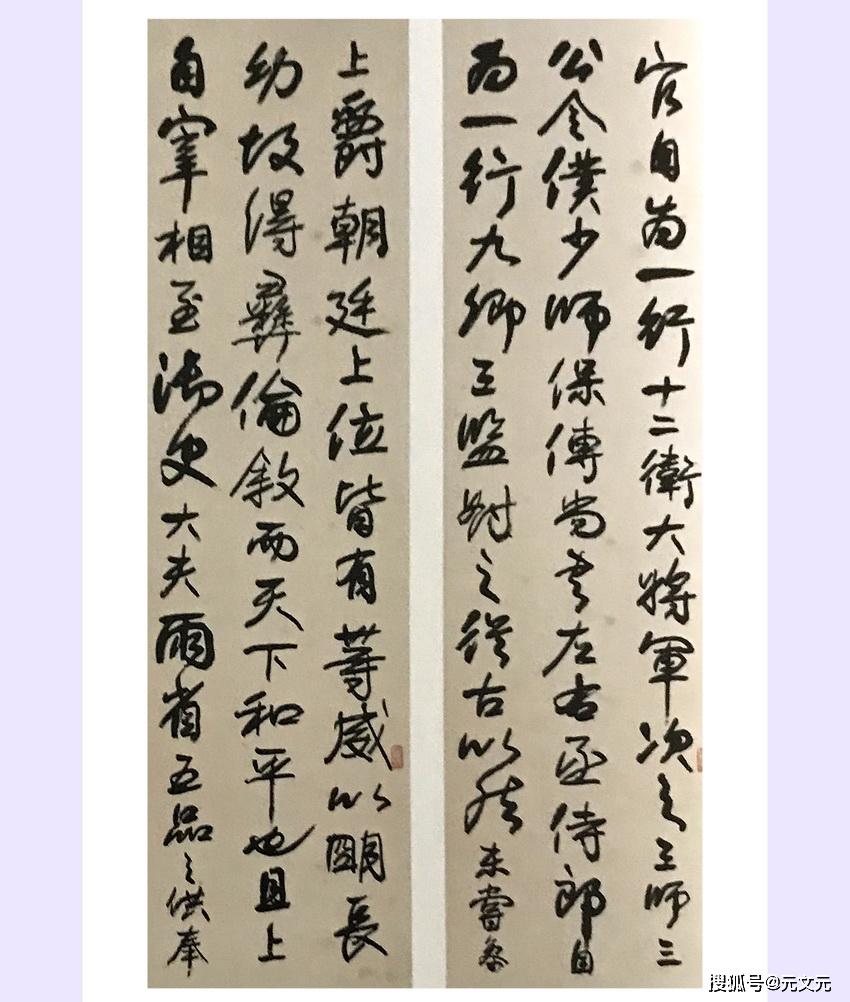 官自為一行十二衛大將軍次之三師三
公令僕少師保傅尚書左右丞侍郎自
為一行九卿三監對之從古以然未嘗參
上爵朝廷上位皆有等威以明長
幼故得彝倫敘而天下和平也且上
自宰相至御史大夫兩省五品之供奉
搜狐号@元文元